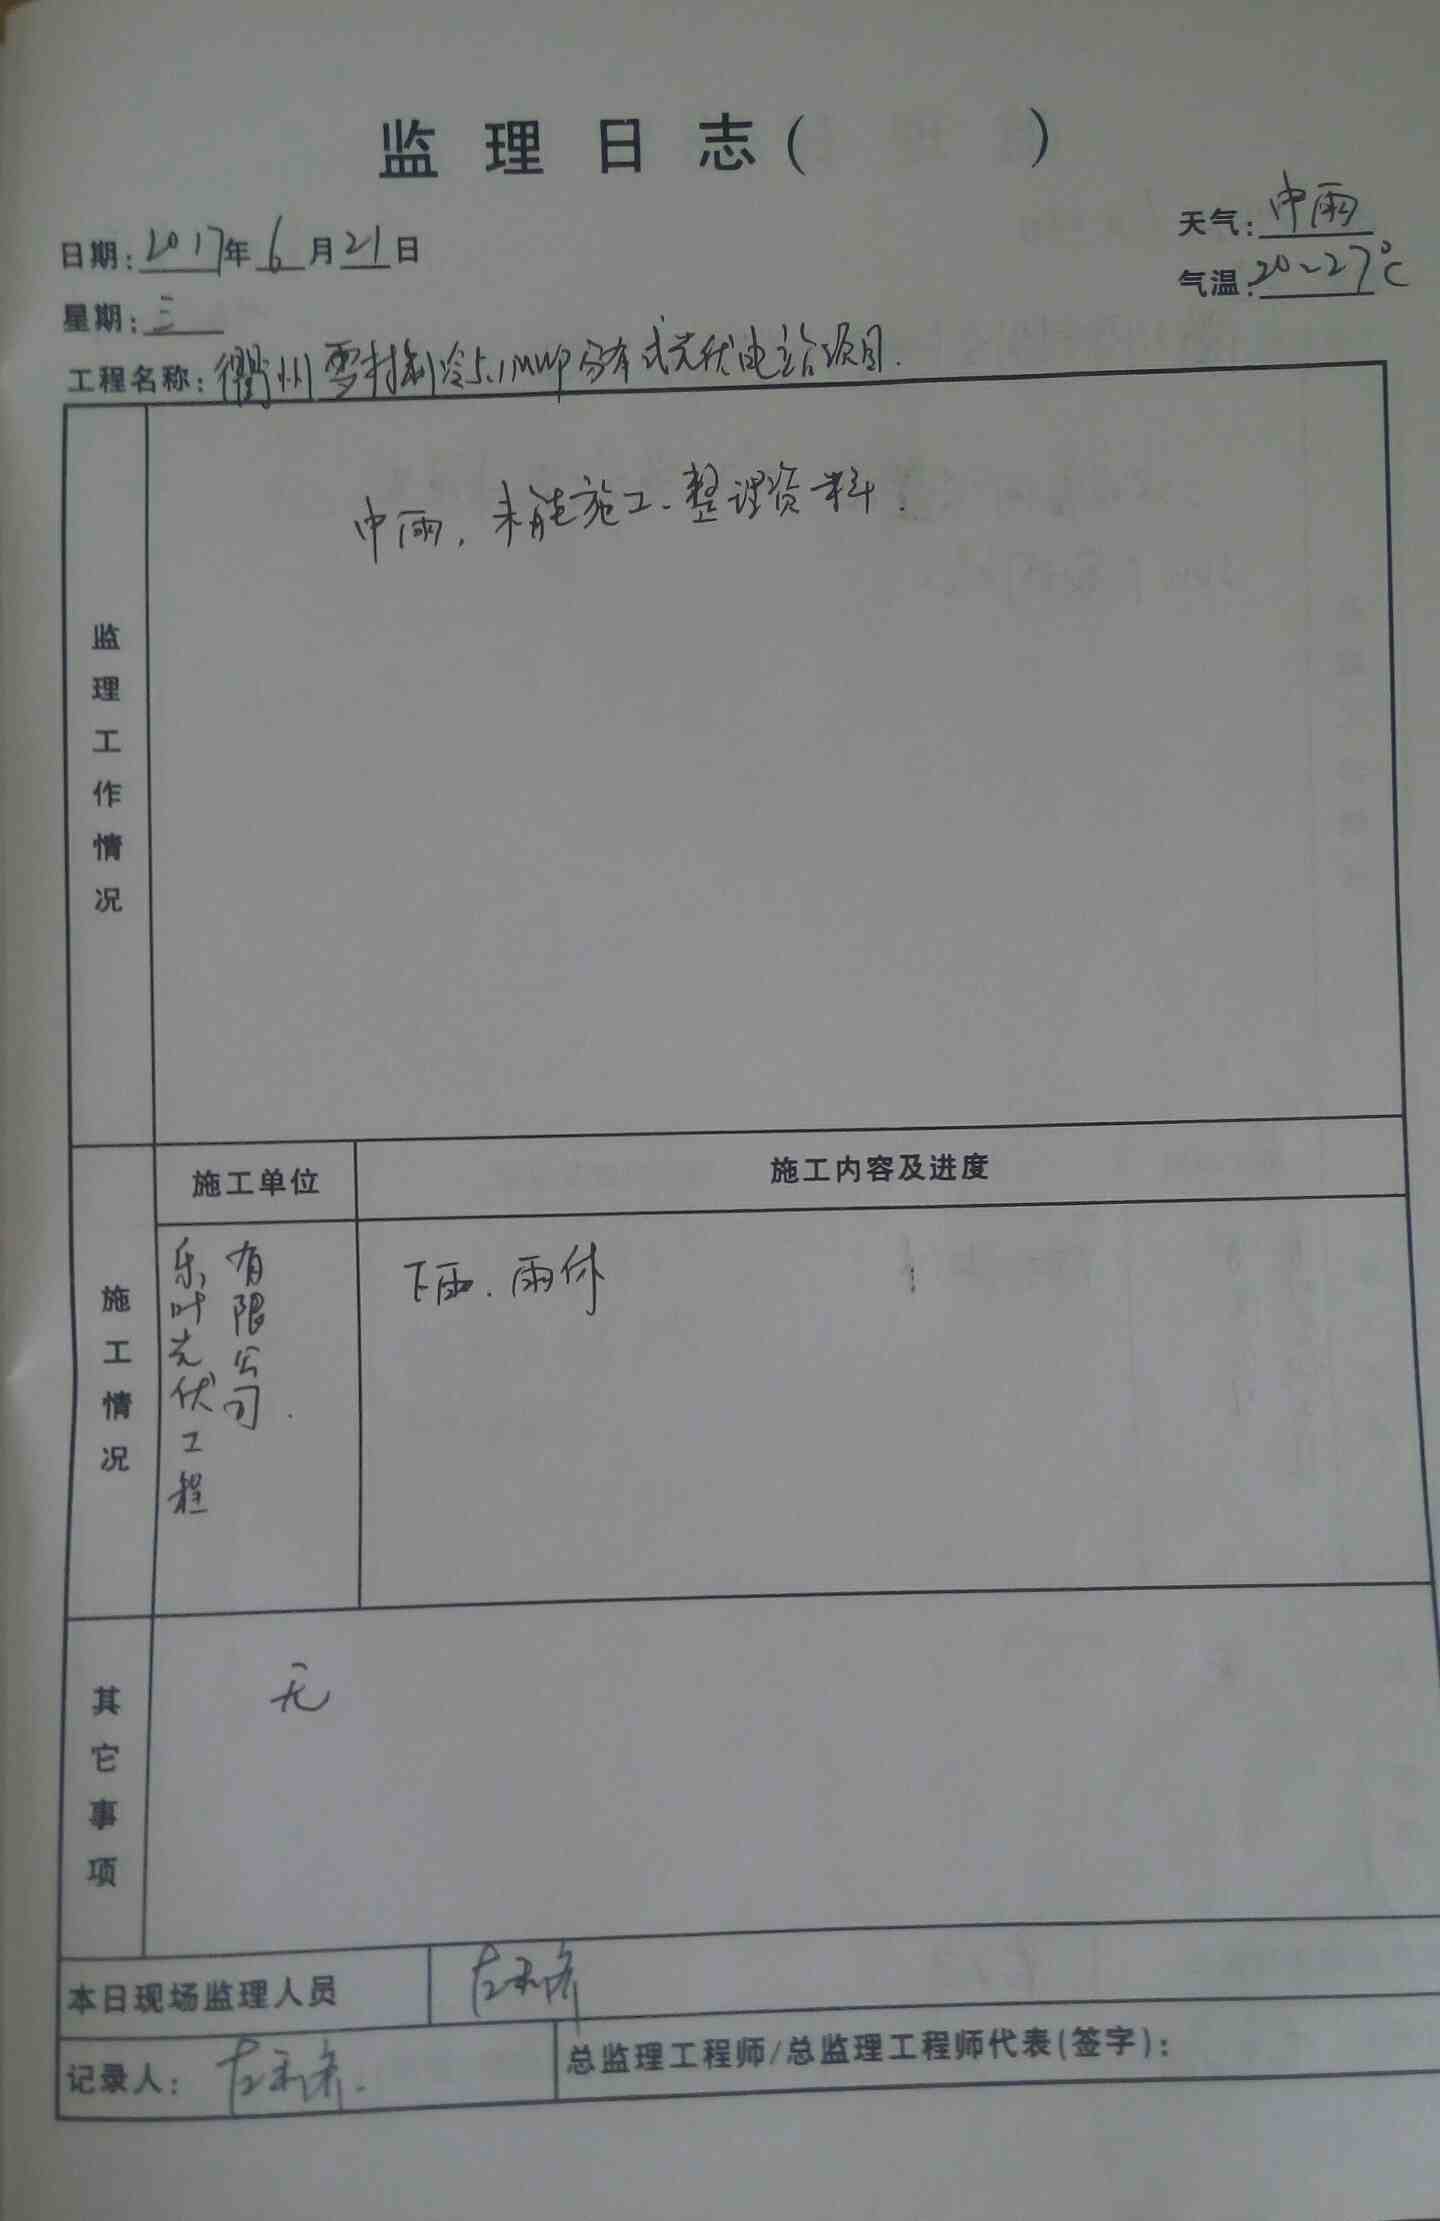 监理日志( )
日期:2017年6月21日
天气:中雨
气温:20~27℃
星期:三
工程名称:衢州雪村制冷5.1MWP分布式光伏电站项目.
监理工作情况
中雨,未能施工、整理资料.
施工情况
施工单位
施工内容及进度
乐叶光伏工程
有限公司.
下雨.雨休
其它事项
无
本日现场监理人员
记录人:
总监理工程师/总监理工程师代表(签字):